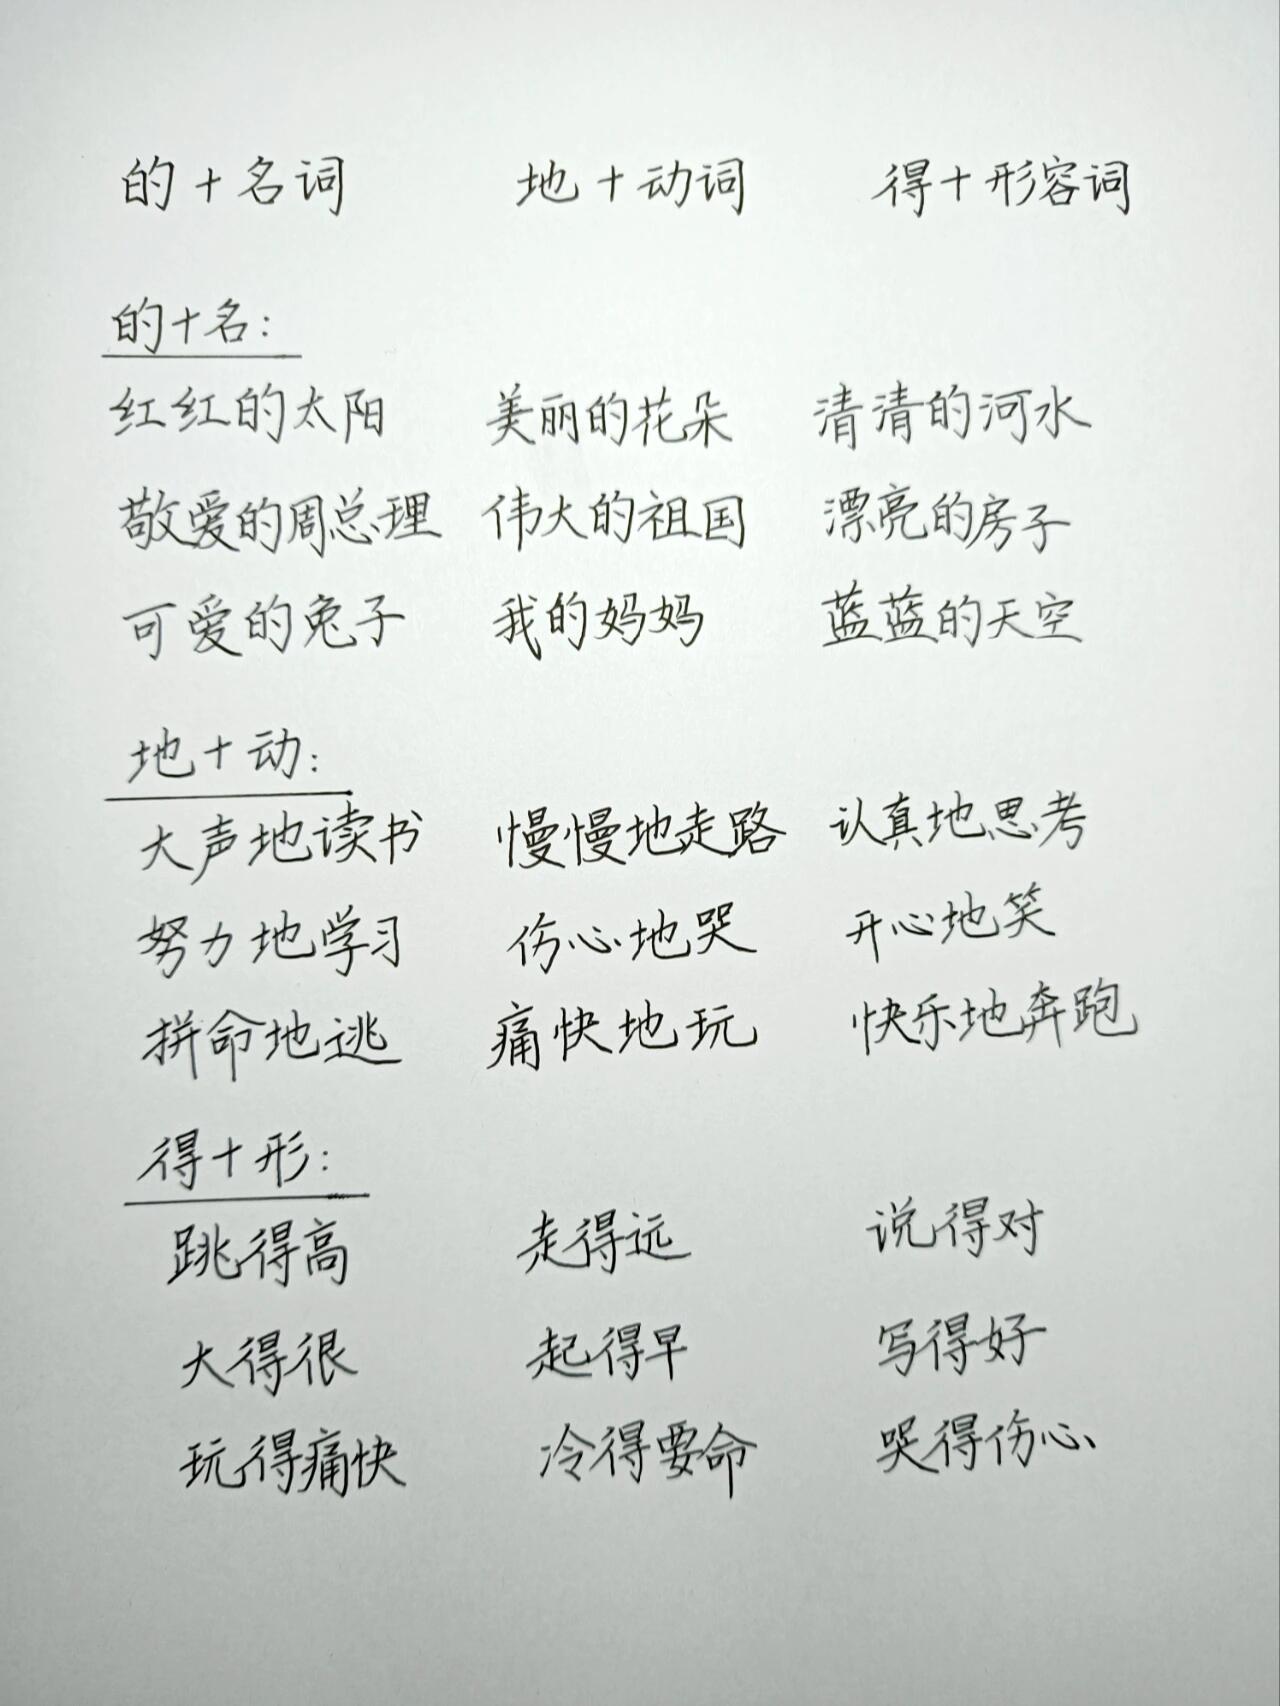 的+名词 地+动词 得+形容词
的+名:
红红的太阳 美丽的花朵 清清的河水
敬爱的周总理 伟大的祖国 漂亮的房子
可爱的兔子 我的妈妈 蓝蓝的天空
地+动:
大声地读书 慢慢地走路 认真地思考
努力地学习 伤心地哭 开心地笑
拼命地逃 痛快地玩 快乐地奔跑
得+形:
跳得高 走得远 说得对
大得很 起得早 写得好
玩得痛快 冷得要命 哭得伤心